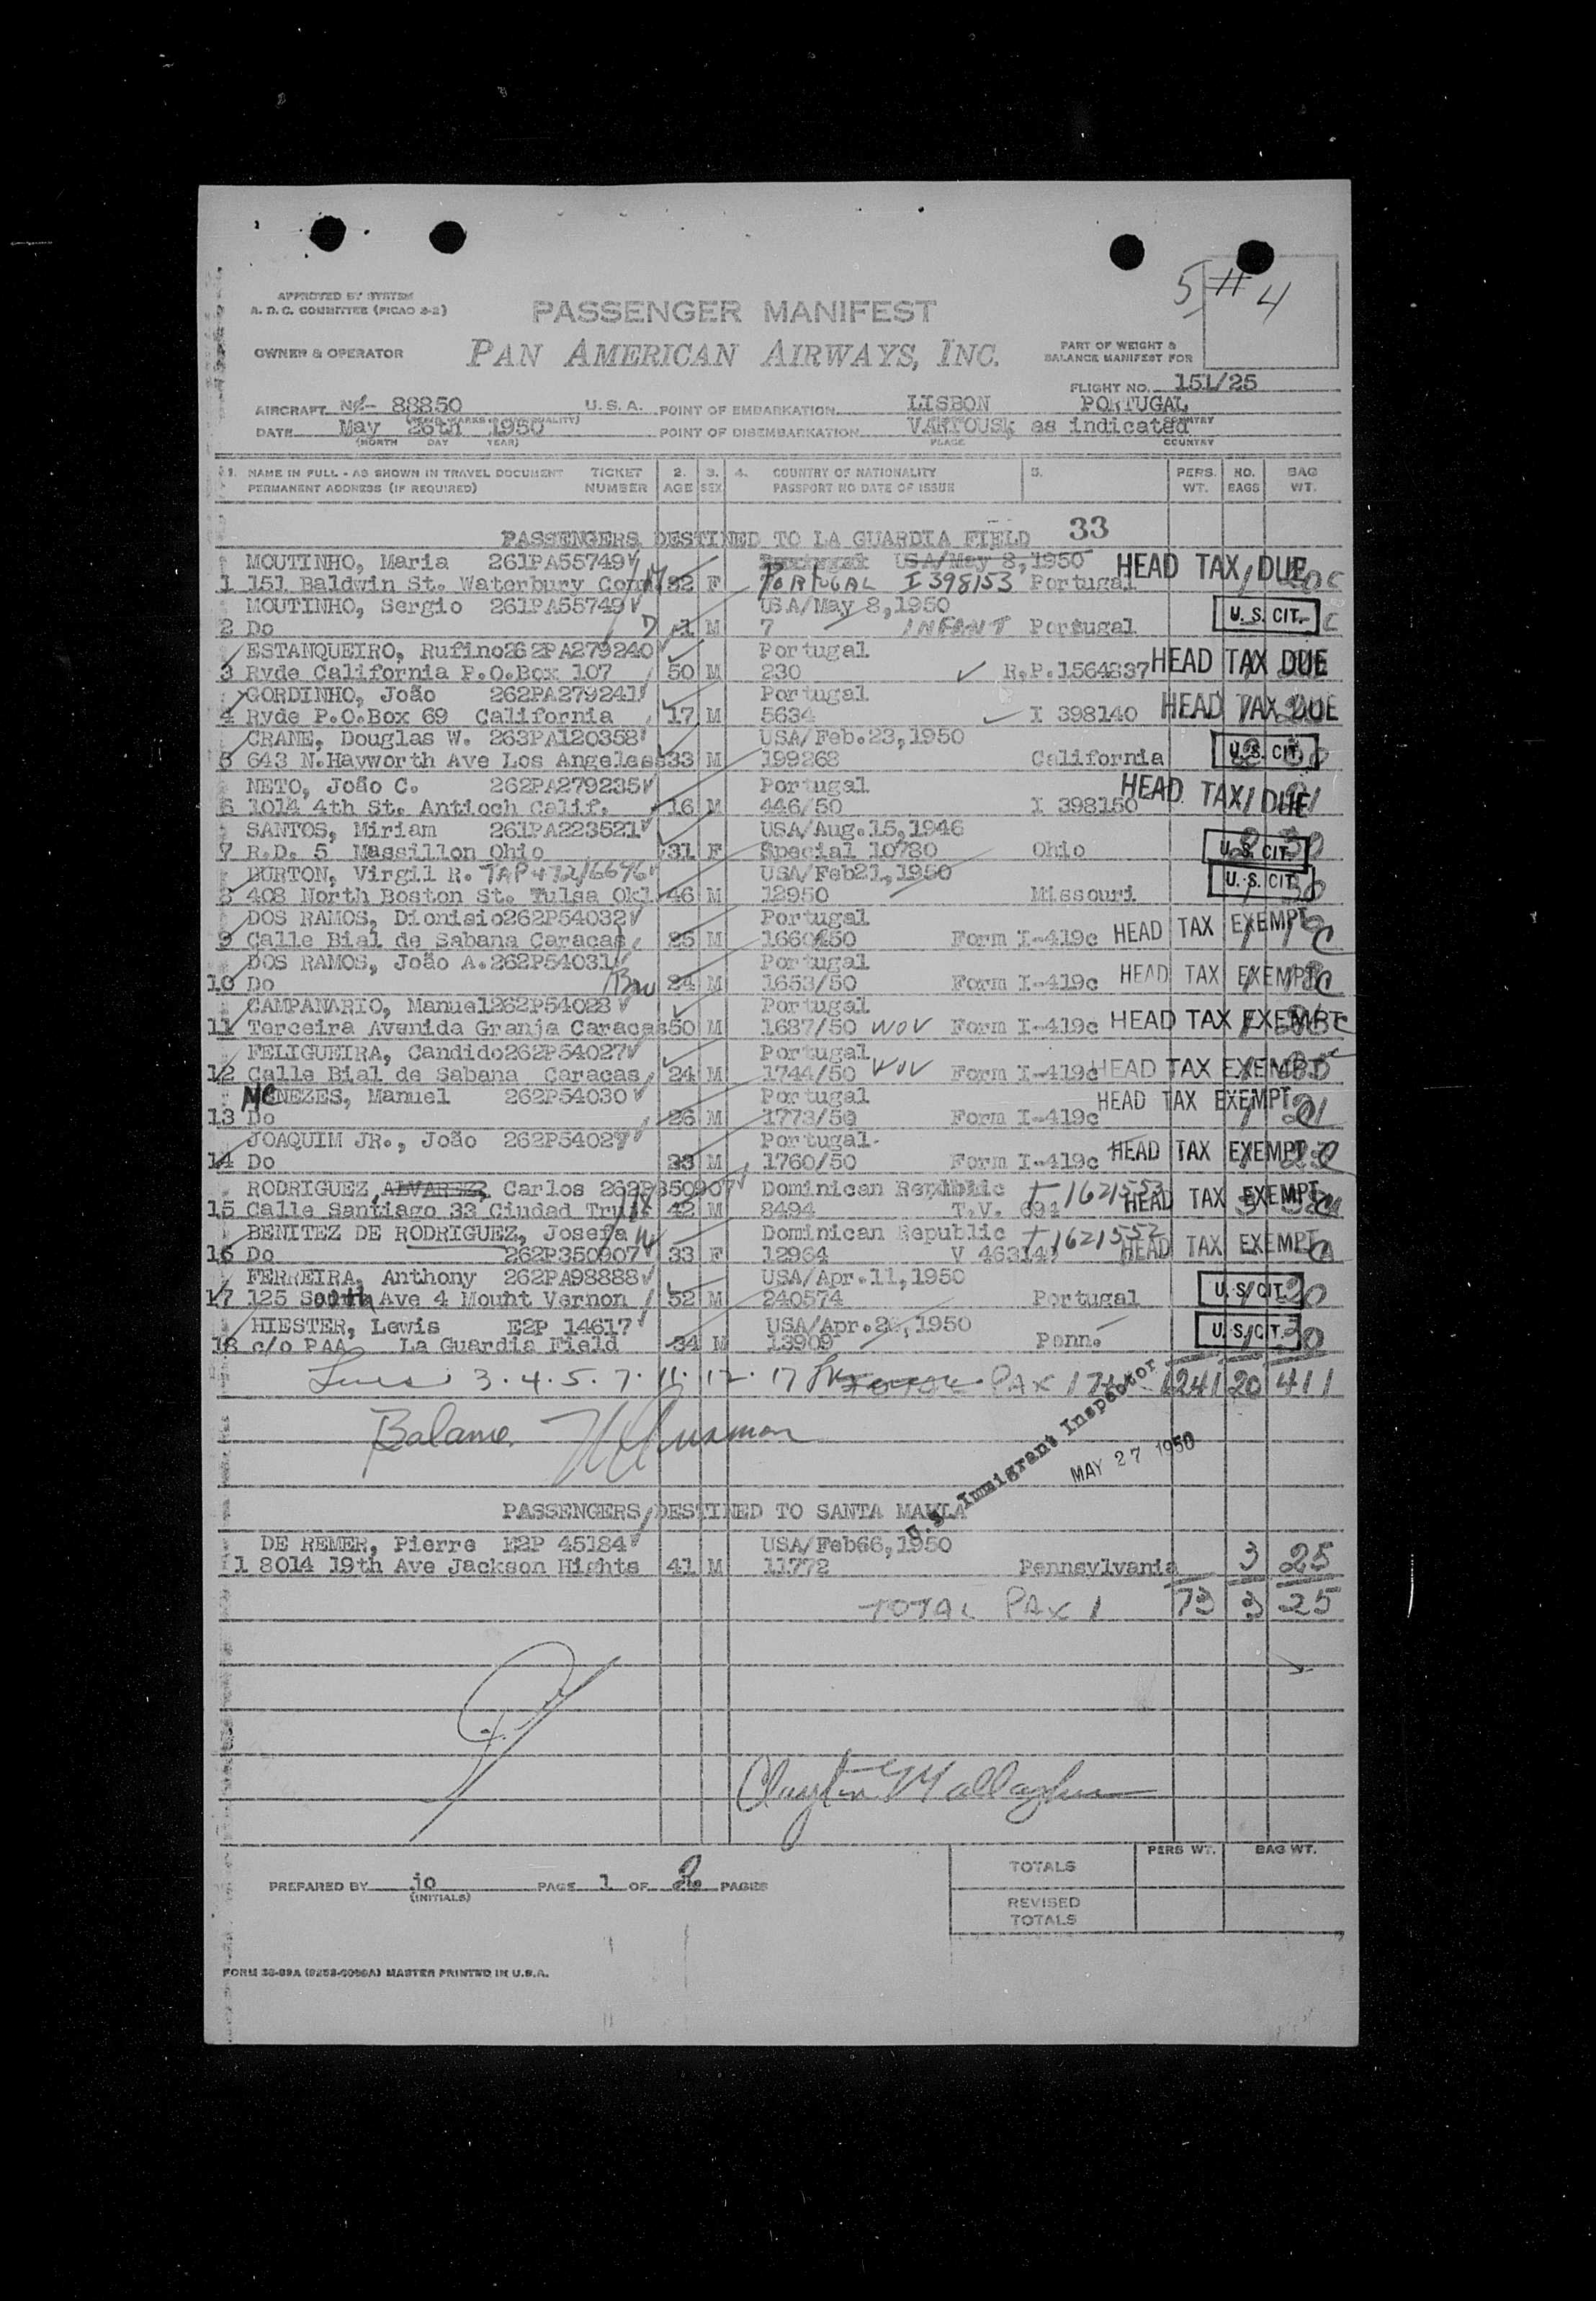 5 # 4
APPROVED BY SYSTEM
A. D. C. COMMITTEE (PICAO 3-2)
PASSENGER MANIFEST
OWNER & OPERATOR PAN AMERICAN AIRWAYS, INC.
PART OF WEIGHT &
BALANCE MANIFEST FOR
FLIGHT NO. 151/25
AIRCRAFT 88850 U.S.A. POINT OF EMBARKATION LISBON PORTUGAL
DATE May 26th 1950 POINT OF DISEMBARKATION as indicated
(MONTH DAY YEAR) PLACE COUNTRY
1. NAME IN FULL - AS SHOWN IN TRAVEL DOCUMENT TICKET 2. 3. 4. COUNTRY OF NATIONALITY 5. PERS. NO. BAG
PERMANENT ADDRESS (IF REQUIRED) NUMBER AGE SEX PASSPORT NO DATE OF ISSUE WT. BAGS WT.
PASSENGERS DESTINED TO LA GUARDIA FIELD 33
MOUTINHO, Maria 261PA55749 USA/May 8,1950 HEAD TAX DUE
1 151 Baldwin St. Waterbury Conn 32 F PORTUGAL I 398153 Portugal
MOUTINHO, Sergio 261PA55749 USA/May 8,1950 U.S. CIT.
2 Do M 7 INFANT Portugal
ESTANQUEIRO, Rufino262PA279240 Portugal
3 Ryde California P.O.Box 107 50 M 230 R.P.1564837 HEAD TAX DUE
GORDINHO, João 262PA279241 Portugal
4 Ryde P.O.Box 69 California 17 M 5634 I 398140 HEAD TAX DUE
CRANE, Douglas W. 263PA120358 USA/Feb.23,1950 U.S. CIT.
5 643 N.Hayworth Ave Los Angeles 33 M 199268 California
NETO, João C. 262PA279235 Portugal
6 1014 4th St. Antioch Calif. 16 M 446/50 I 398150 HEAD TAX DUE
SANTOS, Miriam 261PA223521 USA/Aug.15,1946
7 R.D. 5 Massillon Ohio 31 F Special 10780 Ohio U.S. CIT.
BURTON, Virgil R. USA/Feb21,1950 U.S. CIT.
8 408 North Boston St. Tulsa Okl. 46 M 12950 Missouri
DOS RAMOS, Dionisio262P54032 Portugal
9 Calle Bial de Sabana Caracas 25 M Form I-419c HEAD TAX EXEMPT
DOS RAMOS, João A.262P54031 Portugal
10 Do 24 M 1653/50 Form I-419c HEAD TAX EXEMPT
CAMPANARIO, Manuel262P54028 Portugal
11 Terceira Avenida Granja Caracas50 M 1687/50 WOV Form I-419c HEAD TAX EXEMPT
FELIGUEIRA, Candido262P54027 Portugal
12 Calle Bial de Sabana Caracas 24 M 1744/50 WOV Form I-419c HEAD TAX EXEMPT
MENEZES, Manuel 262P54030 Portugal HEAD TAX EXEMPT
13 Do 26 M 1773/50 Form I-419c
JOAQUIM JR., João Portugal
14 Do 33 M 1760/50 Form I-419c HEAD TAX EXEMPT
RODRIGUEZ, ALVAREZ, Carlos 262P350907 Dominican Republic
15 Calle Santiago 33 Ciudad 42 M 8494 T.V. HEAD TAX EXEMPT
BENITEZ DE RODRIGUEZ, Josefa Dominican Republic
16 Do 262P350907 33 F 12964 HEAD TAX EXEMPT
FERREIRA, Anthony 262PA98888 USA/Apr.11,1950
17 125 South Ave 4 Mount Vernon 52 M 240574 Portugal U.S. CIT.
HIESTER, Lewis E2P 14617 USA/Apr. 1950
18 c/o PAA La Guardia Field 34 M 13909 Penn. U.S. CIT.
3.4.5.7.11.12.17 PAX 1241 20 411
Balance
U.S. Immigrant Inspector
MAY 27 1950
PASSENGERS DESTINED TO SANTA MARIA
DE REMER, Pierre E2P 45184 USA/Feb66,1950
1 8014 19th Ave Jackson Hights 41 M 11772 Pennsylvania 3 25
TOTAL PAX 1 73 3 25
PERS WT. BAG WT.
TOTALS
PREPARED BY jo PAGE 1 OF 2 PAGES
(INITIALS)
REVISED
TOTALS
MASTER PRINTED IN U.S.A.